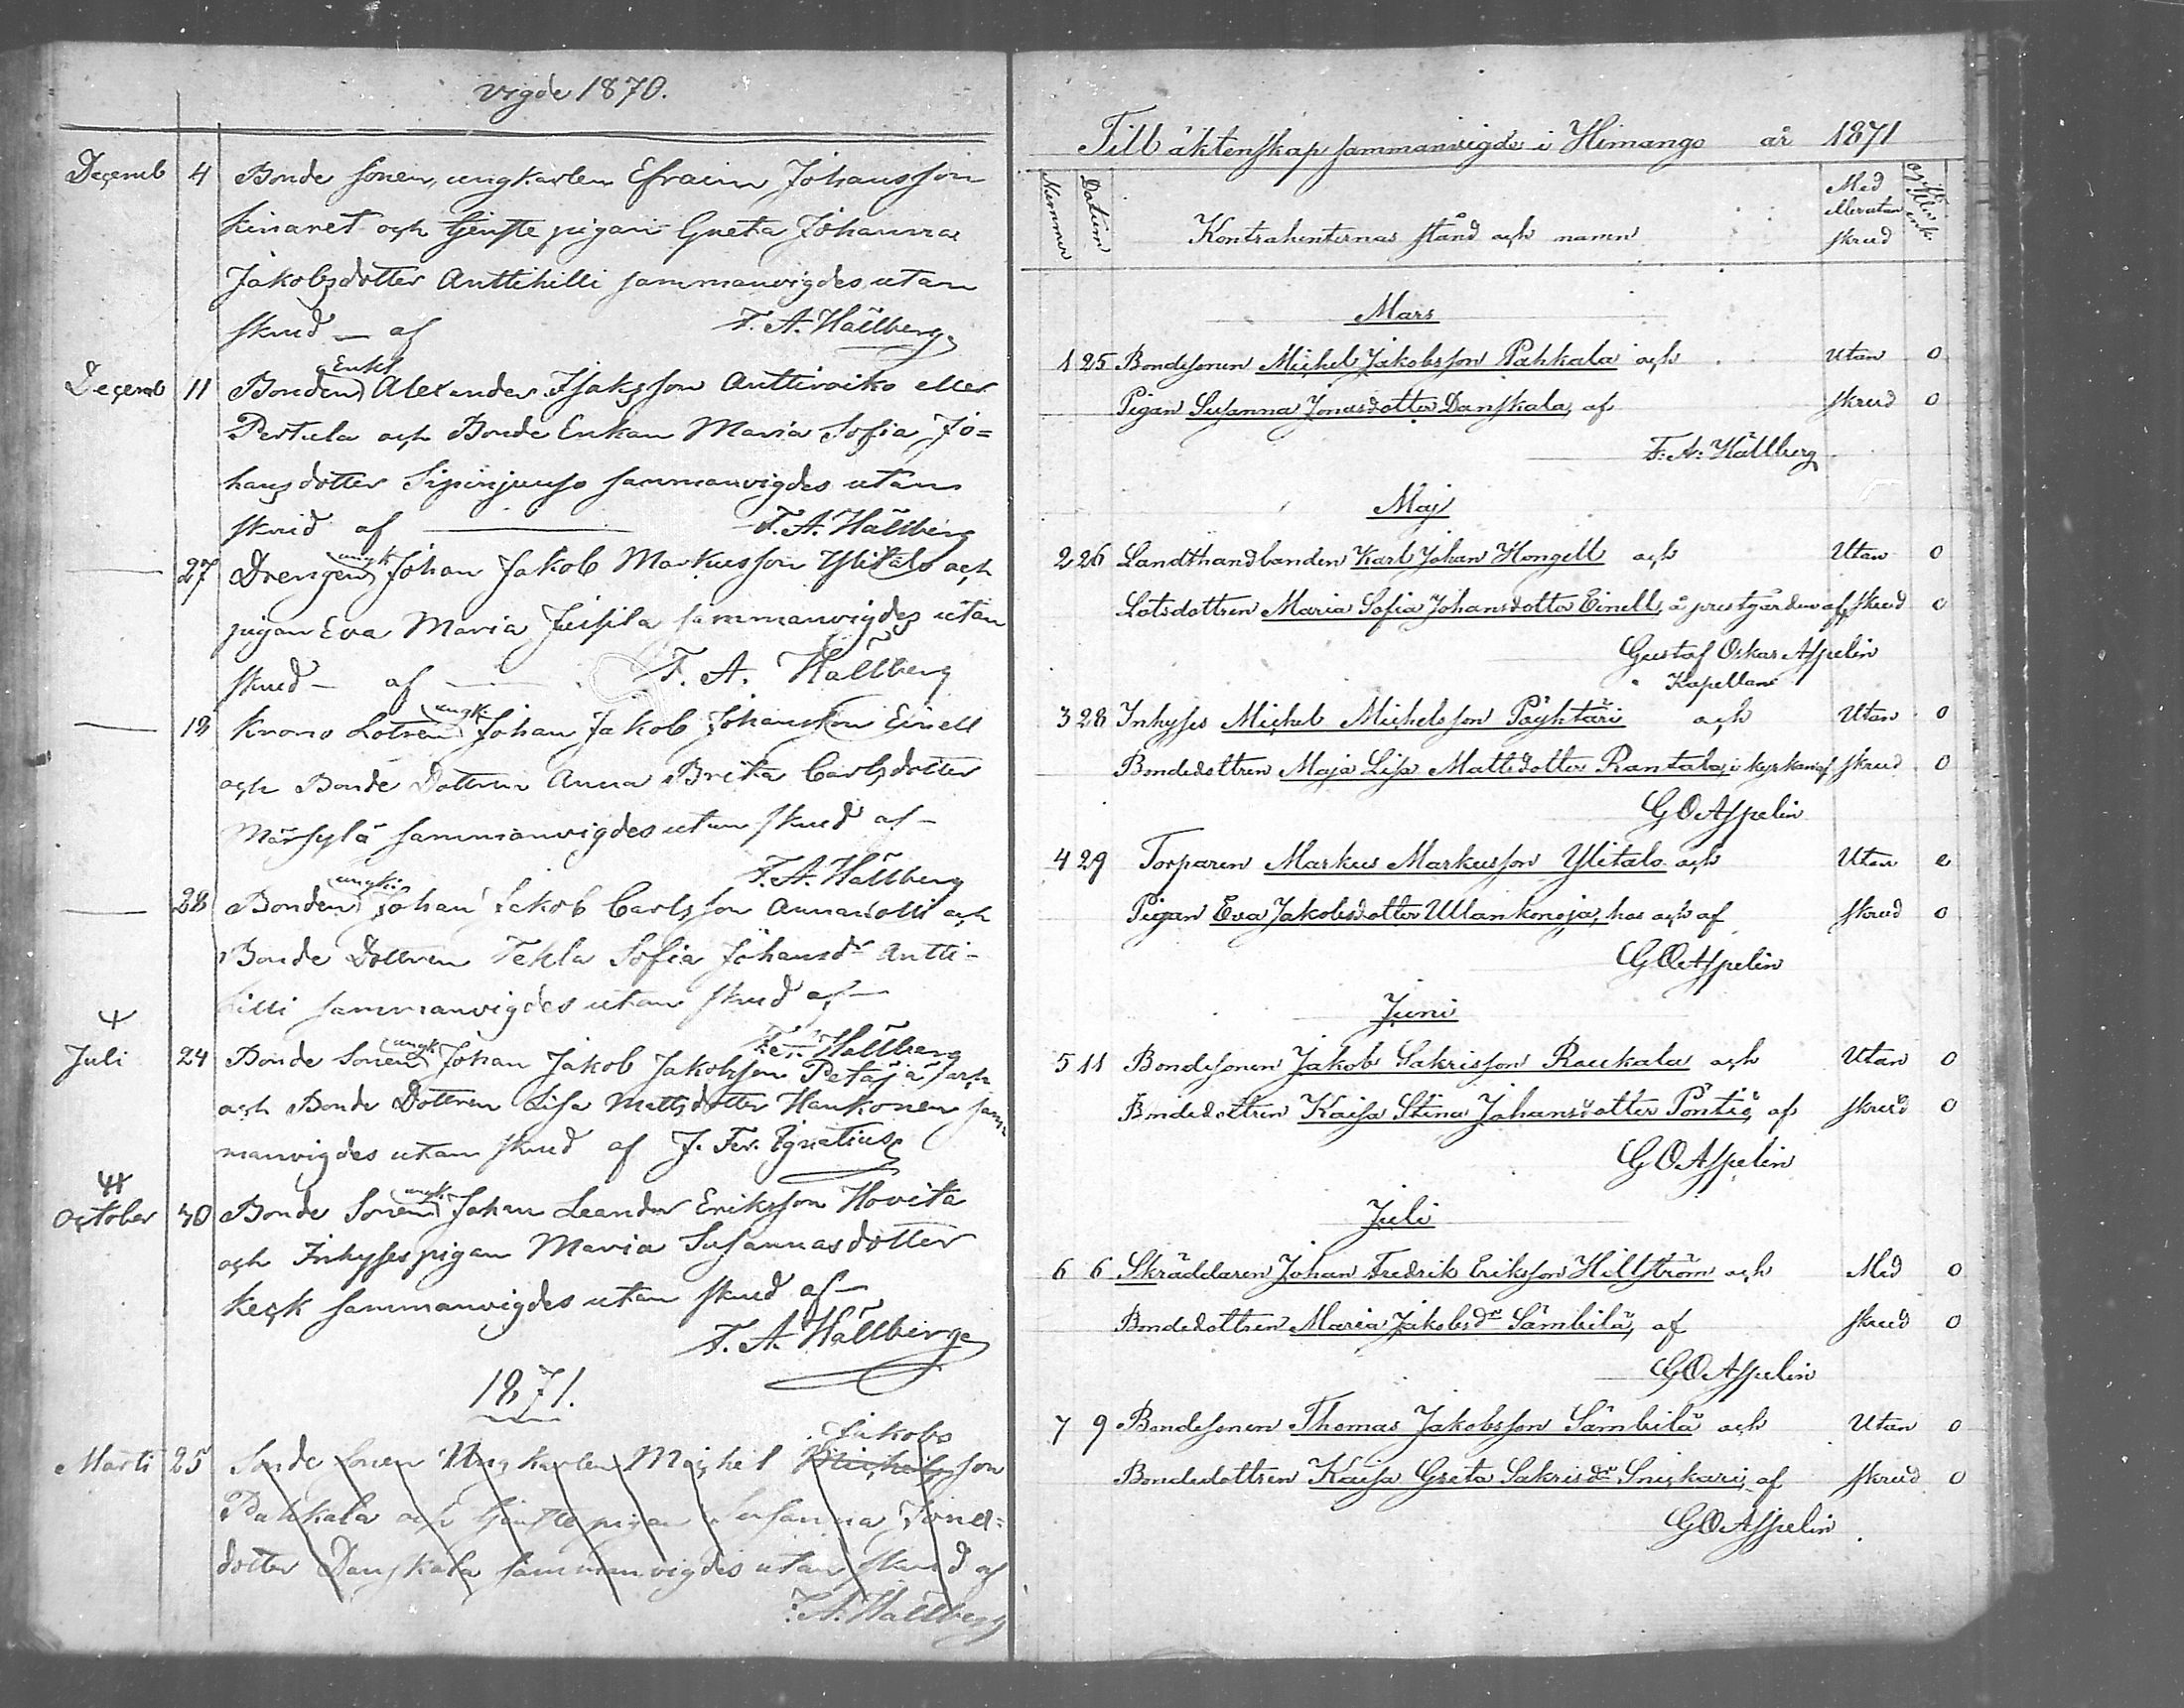 vigde 1870.
Decemb 4 Bonde sonen, ungkarlen Efraim Johansson
Kinaret och tjenste pigan Greta Johanna
Jakobsdotter Anttihilli sammanvigdes utan
skrud — af F. A. Hällberg
Decemb 11 Bonden Enkl Alexander Isaksson Anttiroiko eller
Pertula och Bonde Enkan Maria Sofia Jo=
hansdotter Sipinjunso sammanvigdes utan
skrud af — F. A. Hällberg
— 27 Drengen ungk Johan Jakob Markusson Ylitalo och
pigan Eva Maria Jussila sammanvigdes utan
skrud — af — F. A. Hällberg
— 18 Krono Lotsen ungk. Johan Jakob Johansson Einell
och Bonde Dottren Anna Brita Carlsdotter
Märsylä sammanvigdes utan skrud af —
F. A. Hällberg
— 28 Bonden ungk. Johan Jakob Carlsson och
Bonde Dottren Tekla Sofia Johansdr Antti-
hilli sammanvigdes utan skrud af —
F. A. Hällberg
Juli 24 Bonde Sonen ungk Johan Jakob Jakobsson Petäjä
och Bonde Dottren Lisa Mattsdotter Hankonen sam=
manvigdes utan skrud af J. Fer. Ignatius
October 30 Bonde Sonen ungk. Johan Leander Eriksson Hovita
och Inhysespigan Maria Susannasdotter
Keck sammanvigdes utan skrud af —
F. A. Hällberg
1871.
Jakobs
Marti 25 Bonde sonen Ungkarlen Michel Michels son
Pahkala och tjenste pigan Susanna Jonas=
dotter Danskala sammanvigdes utan skrud af
F. A. Hällberg
Till äktenskap sammanvigde i Himango år 1871
Nummer Datum Kontrahenternas stånd och namn Med eller utan skrud
Mars
1 25 Bondesonen Michel Jakobsson Pahkala och Utan 0
Pigan Susanna Jonasdotter Danskala, af skrud 0
F. A. Hällberg
Maj
2 26 Landthandlanden Karl Johan Hongell och Utan 0
Lotsdottren Maria Sofia Johansdotter Einell, å prestgården af skrud 0
Gustaf Oskar Aspelin
Kapellan
3 28 Inhyses Michel Michelsson Pöyhtäri och Utan 0
Bondedottren Maja Lisa Mattsdotter Rantala, i kyrkan af skrud 0
G O Aspelin
4 29 Torparen Markus Markusson Ylitalo och Utan 0
Pigan Eva Jakobsdotter Ulankonoja, hos och af skrud 0
G O Aspelin
Juni
5 11 Bondesonen Jakob Sakrisson Raukala och Utan 0
Bondedottren Kaisa Stina Johansdotter Pöntiö, af skrud 0
G O Aspelin
Juli
6 6 Skräddaren Johan Fredrik Eriksson Hillström och Med 0
Bondedottren Maria Jakobsdr Sämbilä, af skrud 0
G O Aspelin
7 9 Bondesonen Thomas Jakobsson Sämbilä och Utan 0
Bondedottren Kaisa Greta Sakrisdr Snickari, af skrud 0
G O Aspelin